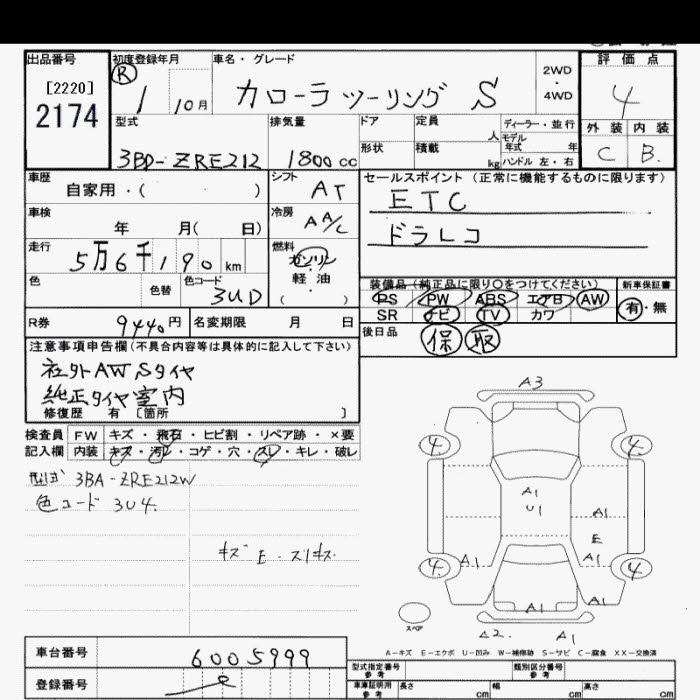 出品番号 初度登録年月 車名・グレード 評価点
[2220]
2174
R 1 10月 カローラツーリング S 2WD・4WD 4
型式 排気量 ドア 定員 人 ディーラー・並行 外装 内装
3BD-ZRE212 1800cc 形状 積載 kg モデル年式 年 ハンドル 左・右 C B.
車歴 シフト セールスポイント (正常に機能するものに限ります)
自家用・( ) AT ETC
車検 冷房 ドラレコ
年 月( 日) AA/C
走行 燃料
5万6千190km ガソリン
軽油
( )
色 色替 色コード 装備品(純正品に限り○をつけてください) 新車保証書
3UD PS PW ABS エアB AW 有・無
SR ナビ TV カワ
R券 9440円 名変期限 月 日 後日品 保 取
注意事項申告欄(不具合内容等は具体的に記入して下さい)
社外AW Sタイヤ
純正タイヤ室内
修復歴 有 [箇所 ]
検査員 FW キズ・飛石・ヒビ割・リペア跡・×要
記入欄 内装 キズ・汚レ・コゲ・穴・スレ・キレ・破レ
3BA-ZRE212W
色コード 3U4.
キズ E・スリキズ
A3
4 4
A1
U1 A1
E
A1 A1
4 4
A1 A1
スペア
A2. A1
A-キズ E-エクボ U-凹み W-補修跡 S-サビ C-腐食 XX-交換済
車台番号 6005999 型式指定番号 参考 類別区分番号 参考
登録番号 車庫証明用 参考 長さ cm 幅 cm 高さ cm